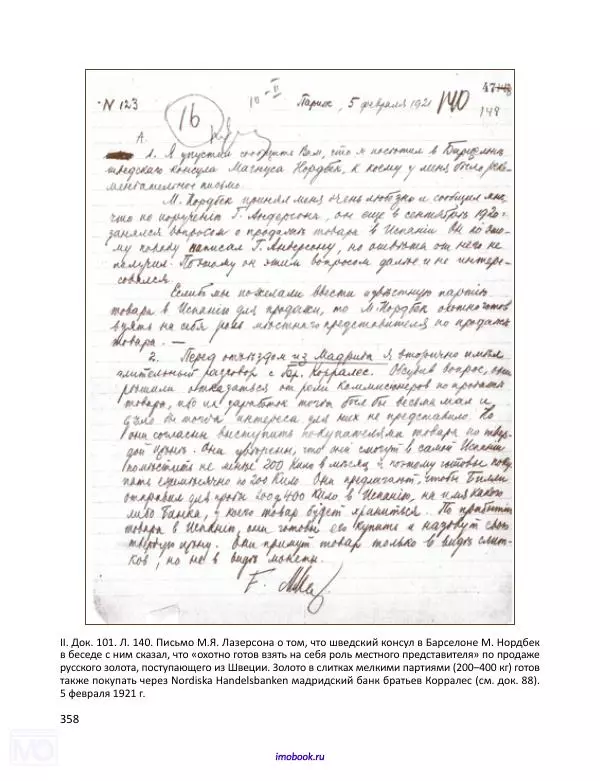 N 123
16
10-II
Париж, 5 февраля 1921
140
47
148
А.
1. Я упустил сообщить Вам, что я посетил в Барселоне
шведского консула Магнуса Нордбек, к коему у меня было реко-
мендательное письмо.
М. Нордбек принял меня очень любезно и сообщил мне,
что по порученію Г. Андерсона, он еще в сентябрѣ 1920 г.
занялся вопросом о продажѣ товара в Испаніи. Он по это-
му поводу написал Г. Андерсону, но отвѣта от него не
получил. Поэтому он этим вопросом далее и не интере-
совался.
Если бы мы пожелали ввести извѣстную партію
товара в Испанію для продажи, то М. Нордбек охотно готов
взять на себя роль мѣстнаго представителя по продажѣ
товара. —
2. Перед отъѣздом из Мадрида я вторично имѣл
длительный разговор с Бр. Корралес. Обсудив вопрос, они
рѣшили отказаться от роли комиссионеров по продажѣ
товара, ибо их заработок тогда был бы весьма мал и
дѣло бы тогда интереса для них не представило. Но
они согласны выступить покупателями товара по твер-
дой цѣнѣ. Они увѣрены, что они смогут в самой Испаніи
помѣстить не менѣе 200 Кило в мѣсяц и поэтому готовы поку-
пать ежемѣсячно по 200 Кило. Они предлагают, чтобы
отправил для пробы 200 400 Кило в Испанію, на имя какого
либо Банка, у коего товар будет храниться. По прибытіи
товара в Испанію, они готовы его купить и назовут свою
твердую цѣну. Они примут товар только в видѣ слит-
ков, но не в видѣ монеты.
II. Док. 101. Л. 140. Письмо М.Я. Лазерсона о том, что шведский консул в Барселоне М. Нордбек
в беседе с ним сказал, что «охотно готов взять на себя роль местного представителя» по продаже
русского золота, поступающего из Швеции. Золото в слитках мелкими партиями (200–400 кг) готов
также покупать через Nordiska Handelsbanken мадридский банк братьев Корралес (см. док. 88).
5 февраля 1921 г.
358
imobook.ru